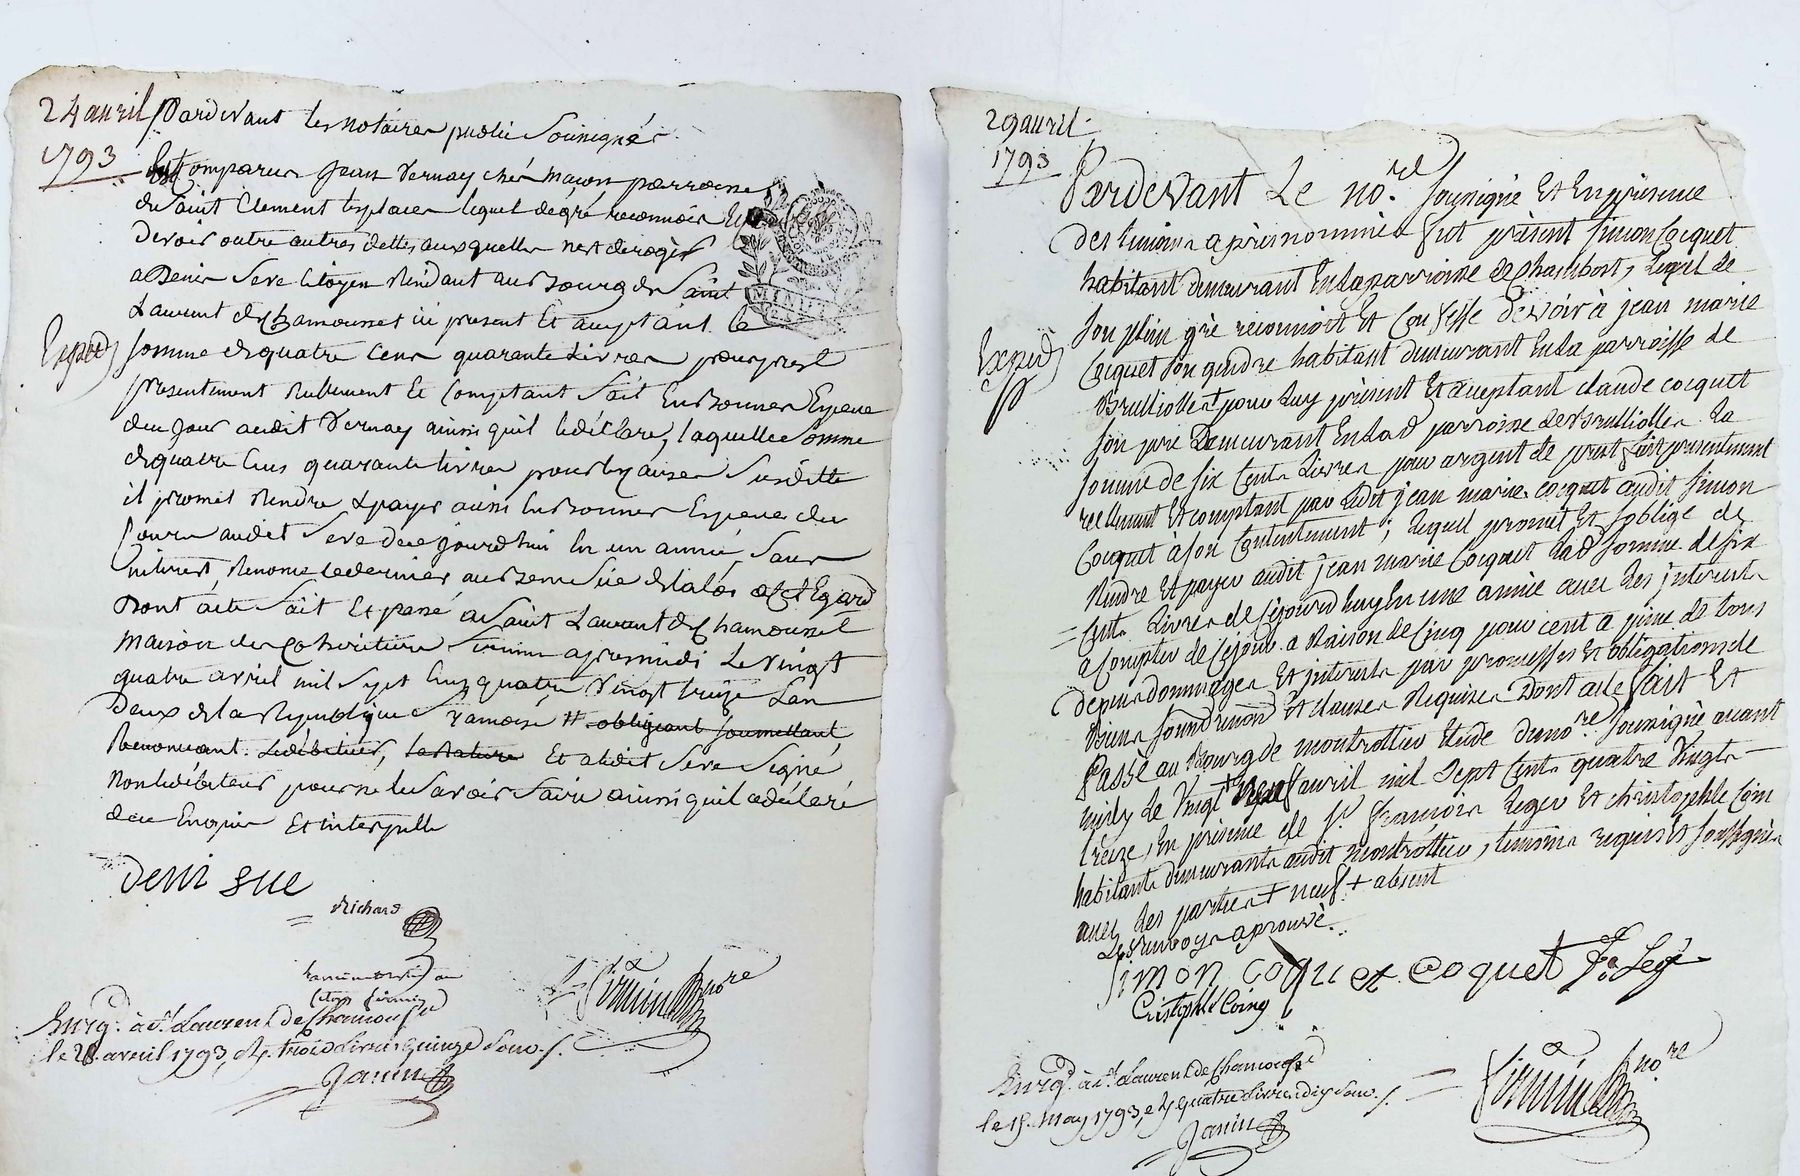 24 avril
1793
Pardevant les notaires public Soussignés
Est Comparu Jean Vernay maçon parroisse
de Saint Clement les places lequel de gré reconnoit
devoir outre autres dettes auxquelles n'est dérogés
a Denis Seve Citoyen Résidant au Bourg de Saint
Laurent de Chamousset ici present Et acceptant la
Exped
somme de quatre Cens quarante Livres pour prest
presentement Réellement Et Comptant fait En Bonnes Espece
du Jour audit Vernay ainsi quil le déclare, laquelle Somme
de quatre Cens quarante livres pour les causes Susditte
il promet Rendre & payer aussi En Bonnes Especes du
Cours audit Seve dece jourdhui En un année, Sans
interest,
Dont acte fait Et passé a Saint Laurent de Chamousset
maison de apres midi Le vingt
quatre avril mil Sept Cens quatre Vingt treize Lan
Deux de la Republique francoise # obligeant soumettant
Renoncant. Et a ledit Seve Signé
Non le débiteur pour ne le Savoir faire ainsi quil a déclaré
de ce Enquis Et interpellé
Deni SeVe
Richard
Firmin Nore
Enrg. à St. Laurent de Chamousset
le 28 avril 1793, trois livres quinze Sous.
Janin
29 avril
1793
Pardevant Le nore Soussigné Et En présence
des temoins apres nommés fut présent Simon Cocquet
habitant demeurant En la parroisse de Chambost, Lequel de
son plein gré reconnoit Et Confesse devoir à jean marie
Exped
Cocquet son gendre habitant demeurant En la parroisse de
Brulliolles + pour Luy présent Et acceptant claude cocquet
son pere Demeurant En lad parroisse de Brulliolles La
somme de six Cents Livres pour argent de prest fait présentement
reellement Et comptant par Ledit jean marie cocquet audit Simon
Cocquet à son Contentement; Lequel promet Et soblige de
Rendre Et payer audit jean marie Cocquet Lad somme de six
= Cents Livres de Cejourdhuy En une année avec Les jnterests
a Compter de Cejour a Raison de Cinq pour cent a peine de tous
depens dommages Et jnterests par promesses Et obligations de
Biens Et clauses Requises Dont acte fait Et
Passé au Bourg de montrottier Etude du nore Soussigné avant
midy Le Vingt + neuf avril mil Sept Cents quatre Vingts
treize, En présence de Sr. francois Leger Et christophle Coin
habitants demeurants audit montrottier, temoins requis Et soussignés
avec Les parties + neuf + absent
Les renvoys aprouvé.
Simon coquet Coquet F. Legé
Cristophle Coing
Firmin nore
Enrg. à St. Laurent de Chamousset
le 15. May 1793, quatre livres dix Sous.
Janin